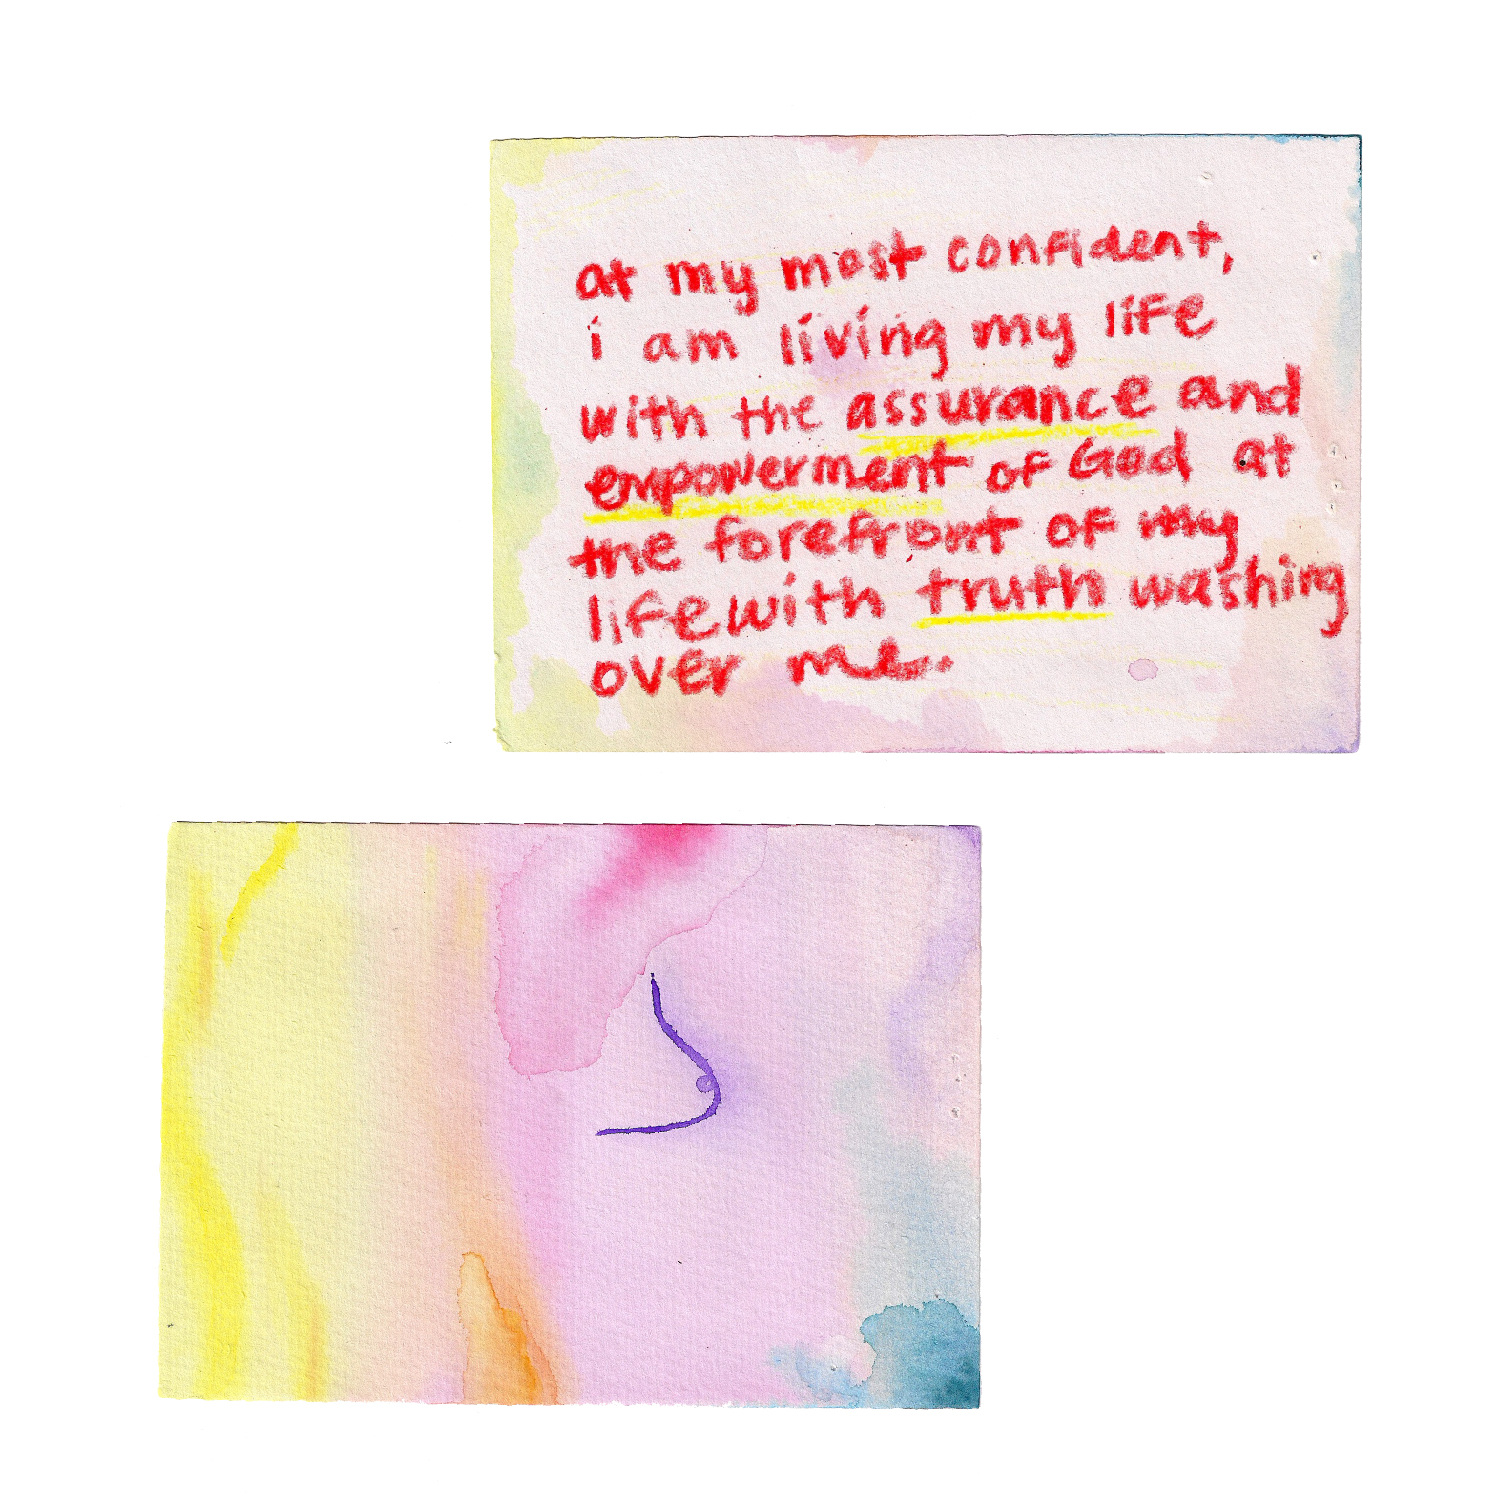 at my most confident,
i am living my life
with the assurance and
empowerment of God at
the forefront of my
life with truth washing
over me.